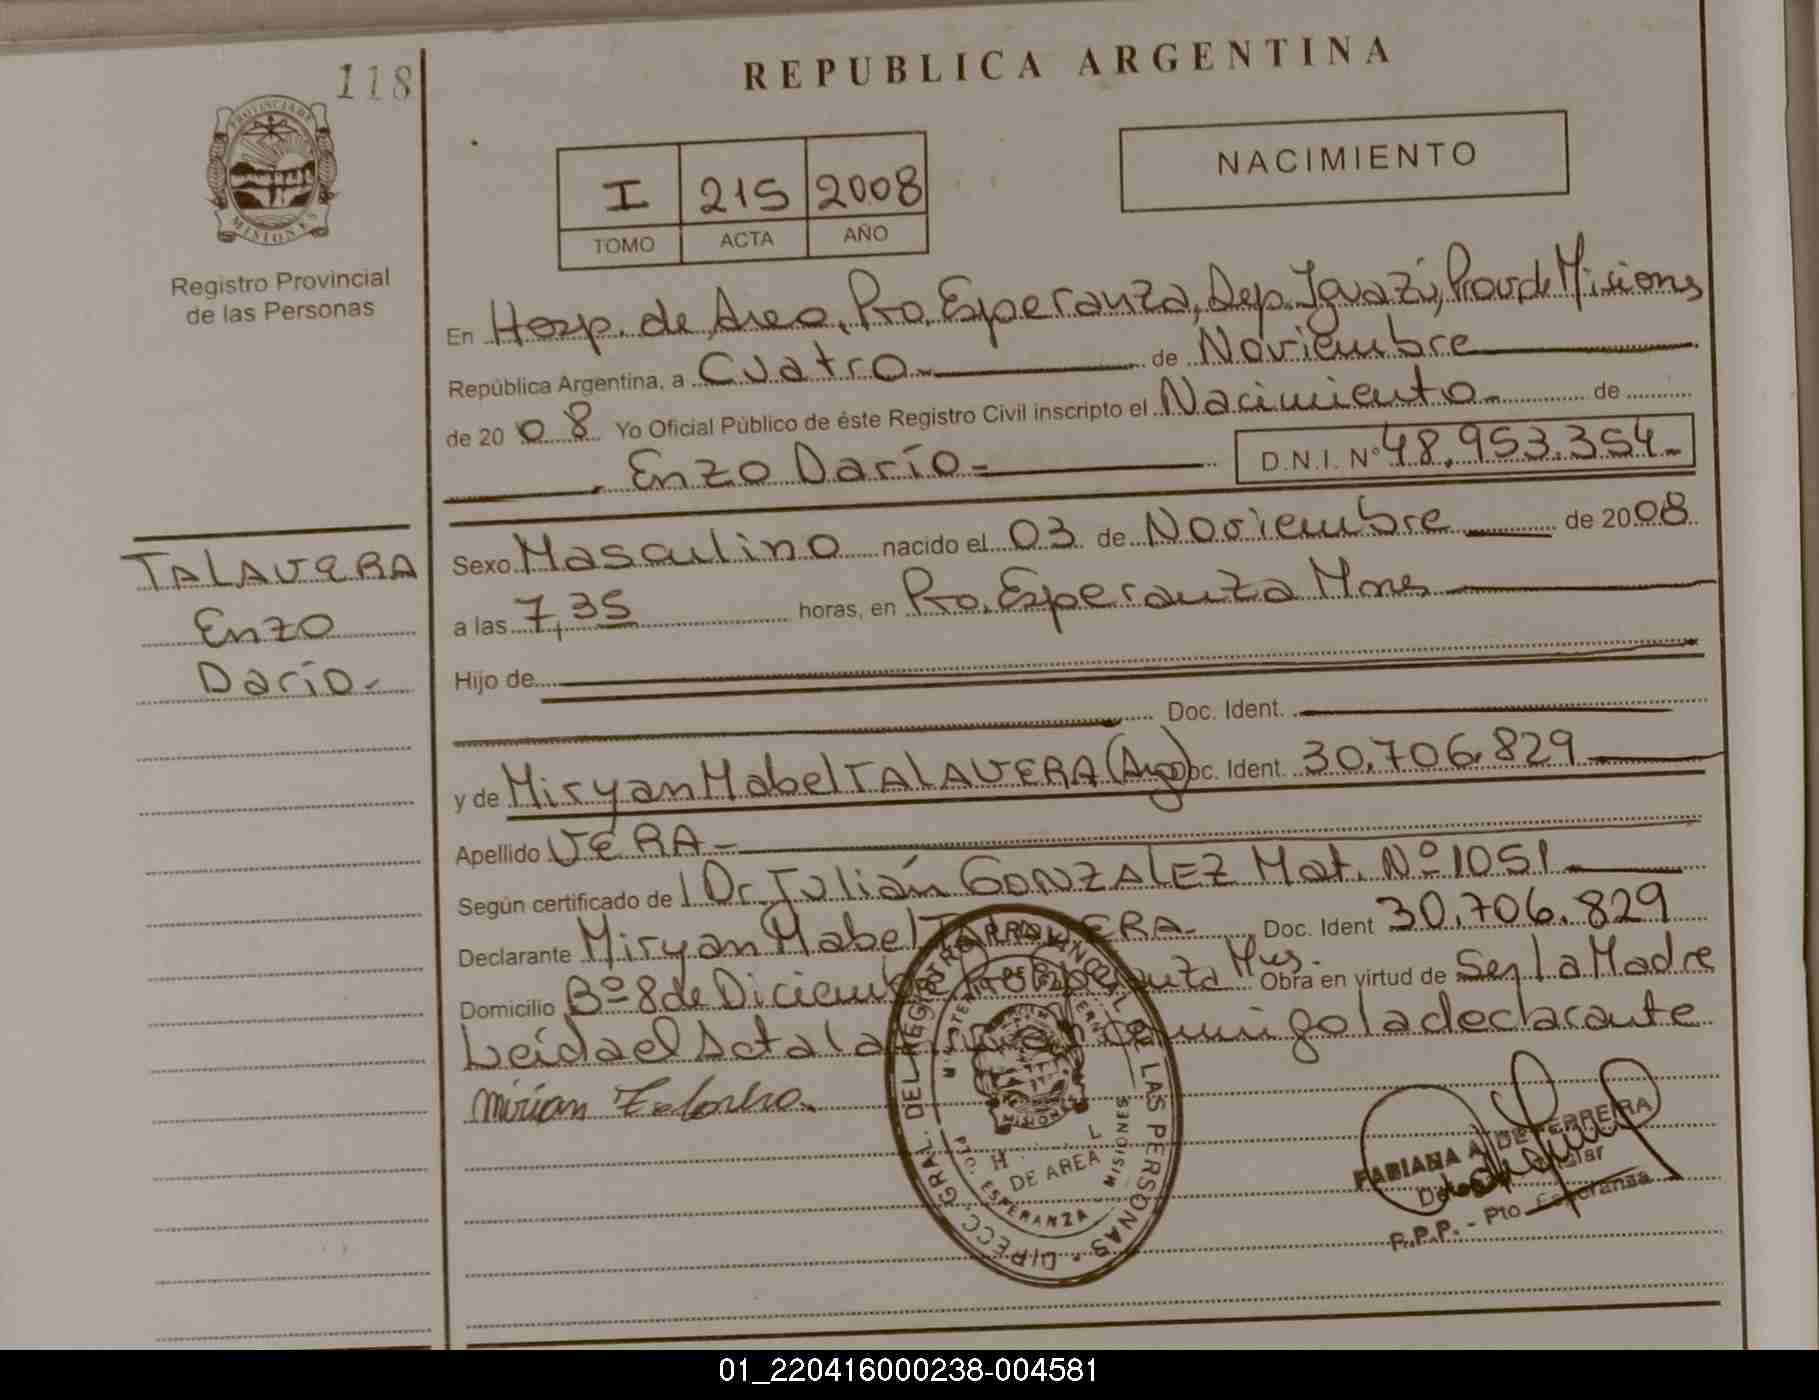 118
REPUBLICA ARGENTINA
PROVINCIA DE
MISIONES
Registro Provincial
de las Personas
I 215 2008
TOMO ACTA AÑO
NACIMIENTO
En Hosp. de Area, Pto. Esperanza, Dep. Iguazú, Prov de Misiones
República Argentina, a Cuatro de Noviembre
de 2008 Yo Oficial Público de éste Registro Civil inscripto el Nacimiento de
Enzo Darío D.N.I. Nº 48.953.354
TALAVERA
Enzo
Darío
Sexo Masculino nacido el 03 de Noviembre de 2008
a las 7,35 horas, en Pto. Esperanza Mnes
Hijo de
Doc. Ident.
y de Miryan Mabel TALAVERA (Arg) Doc. Ident. 30.706.829
Apellido VERA
Según certificado de Dr. Julián GONZALEZ Mat. Nº 1051
Declarante Miryan Mabel TALAVERA Doc. Ident 30.706.829
Domicilio Bº 8 de Diciembre Pto Esperanza Mns. Obra en virtud de Ser la Madre
Leída el Acta la firma conmigo la declarante
DIRECC. GRAL. DEL REGISTRO PROVINCIAL DE LAS PERSONAS
MISIONES
DE AREA
PTO. ESPERANZA - MISIONES
FABIANA A. DE FERREIRA
R.P.P. - Pto Esperanza
01_220416000238-004581